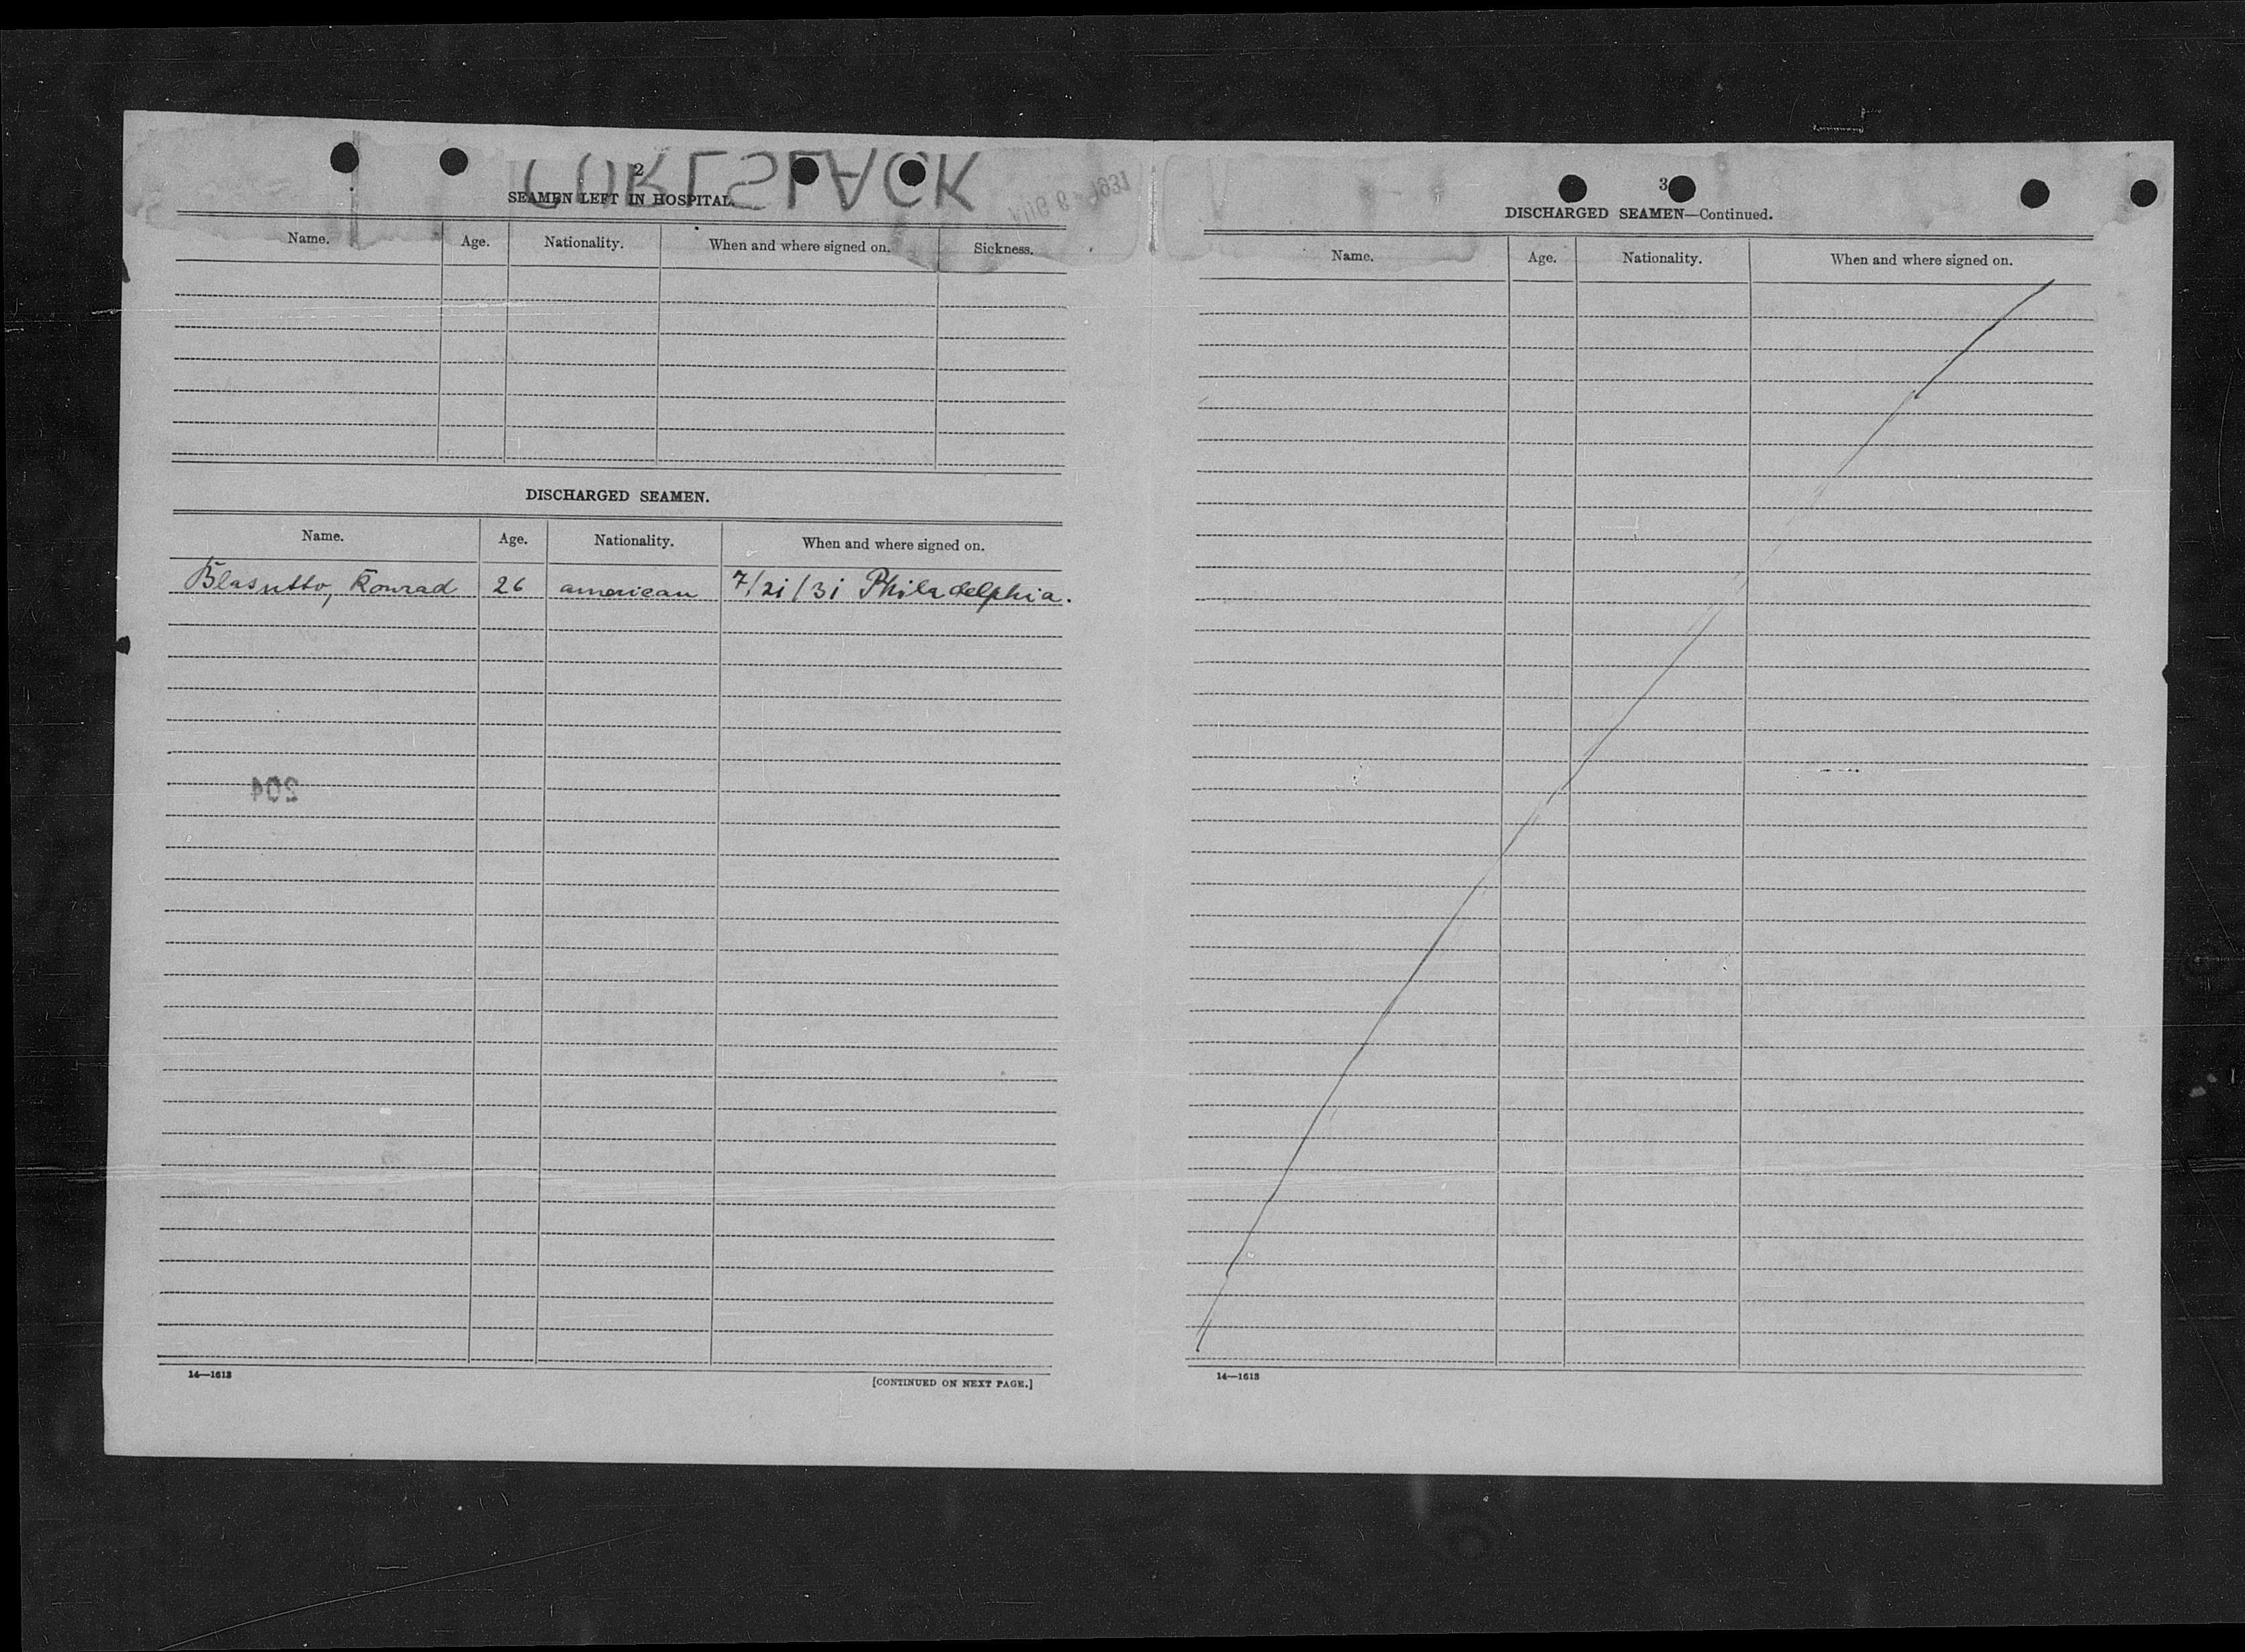 2
SEAMEN LEFT IN HOSPITAL.
Name. Age. Nationality. When and where signed on. Sickness.
DISCHARGED SEAMEN.
Name. Age. Nationality. When and where signed on.
Blasutto, Konrad 26 american 7/21/31 Philadelphia.
204
14—1613
[CONTINUED ON NEXT PAGE.]
3
DISCHARGED SEAMEN—Continued.
Name. Age. Nationality. When and where signed on.
14—1613